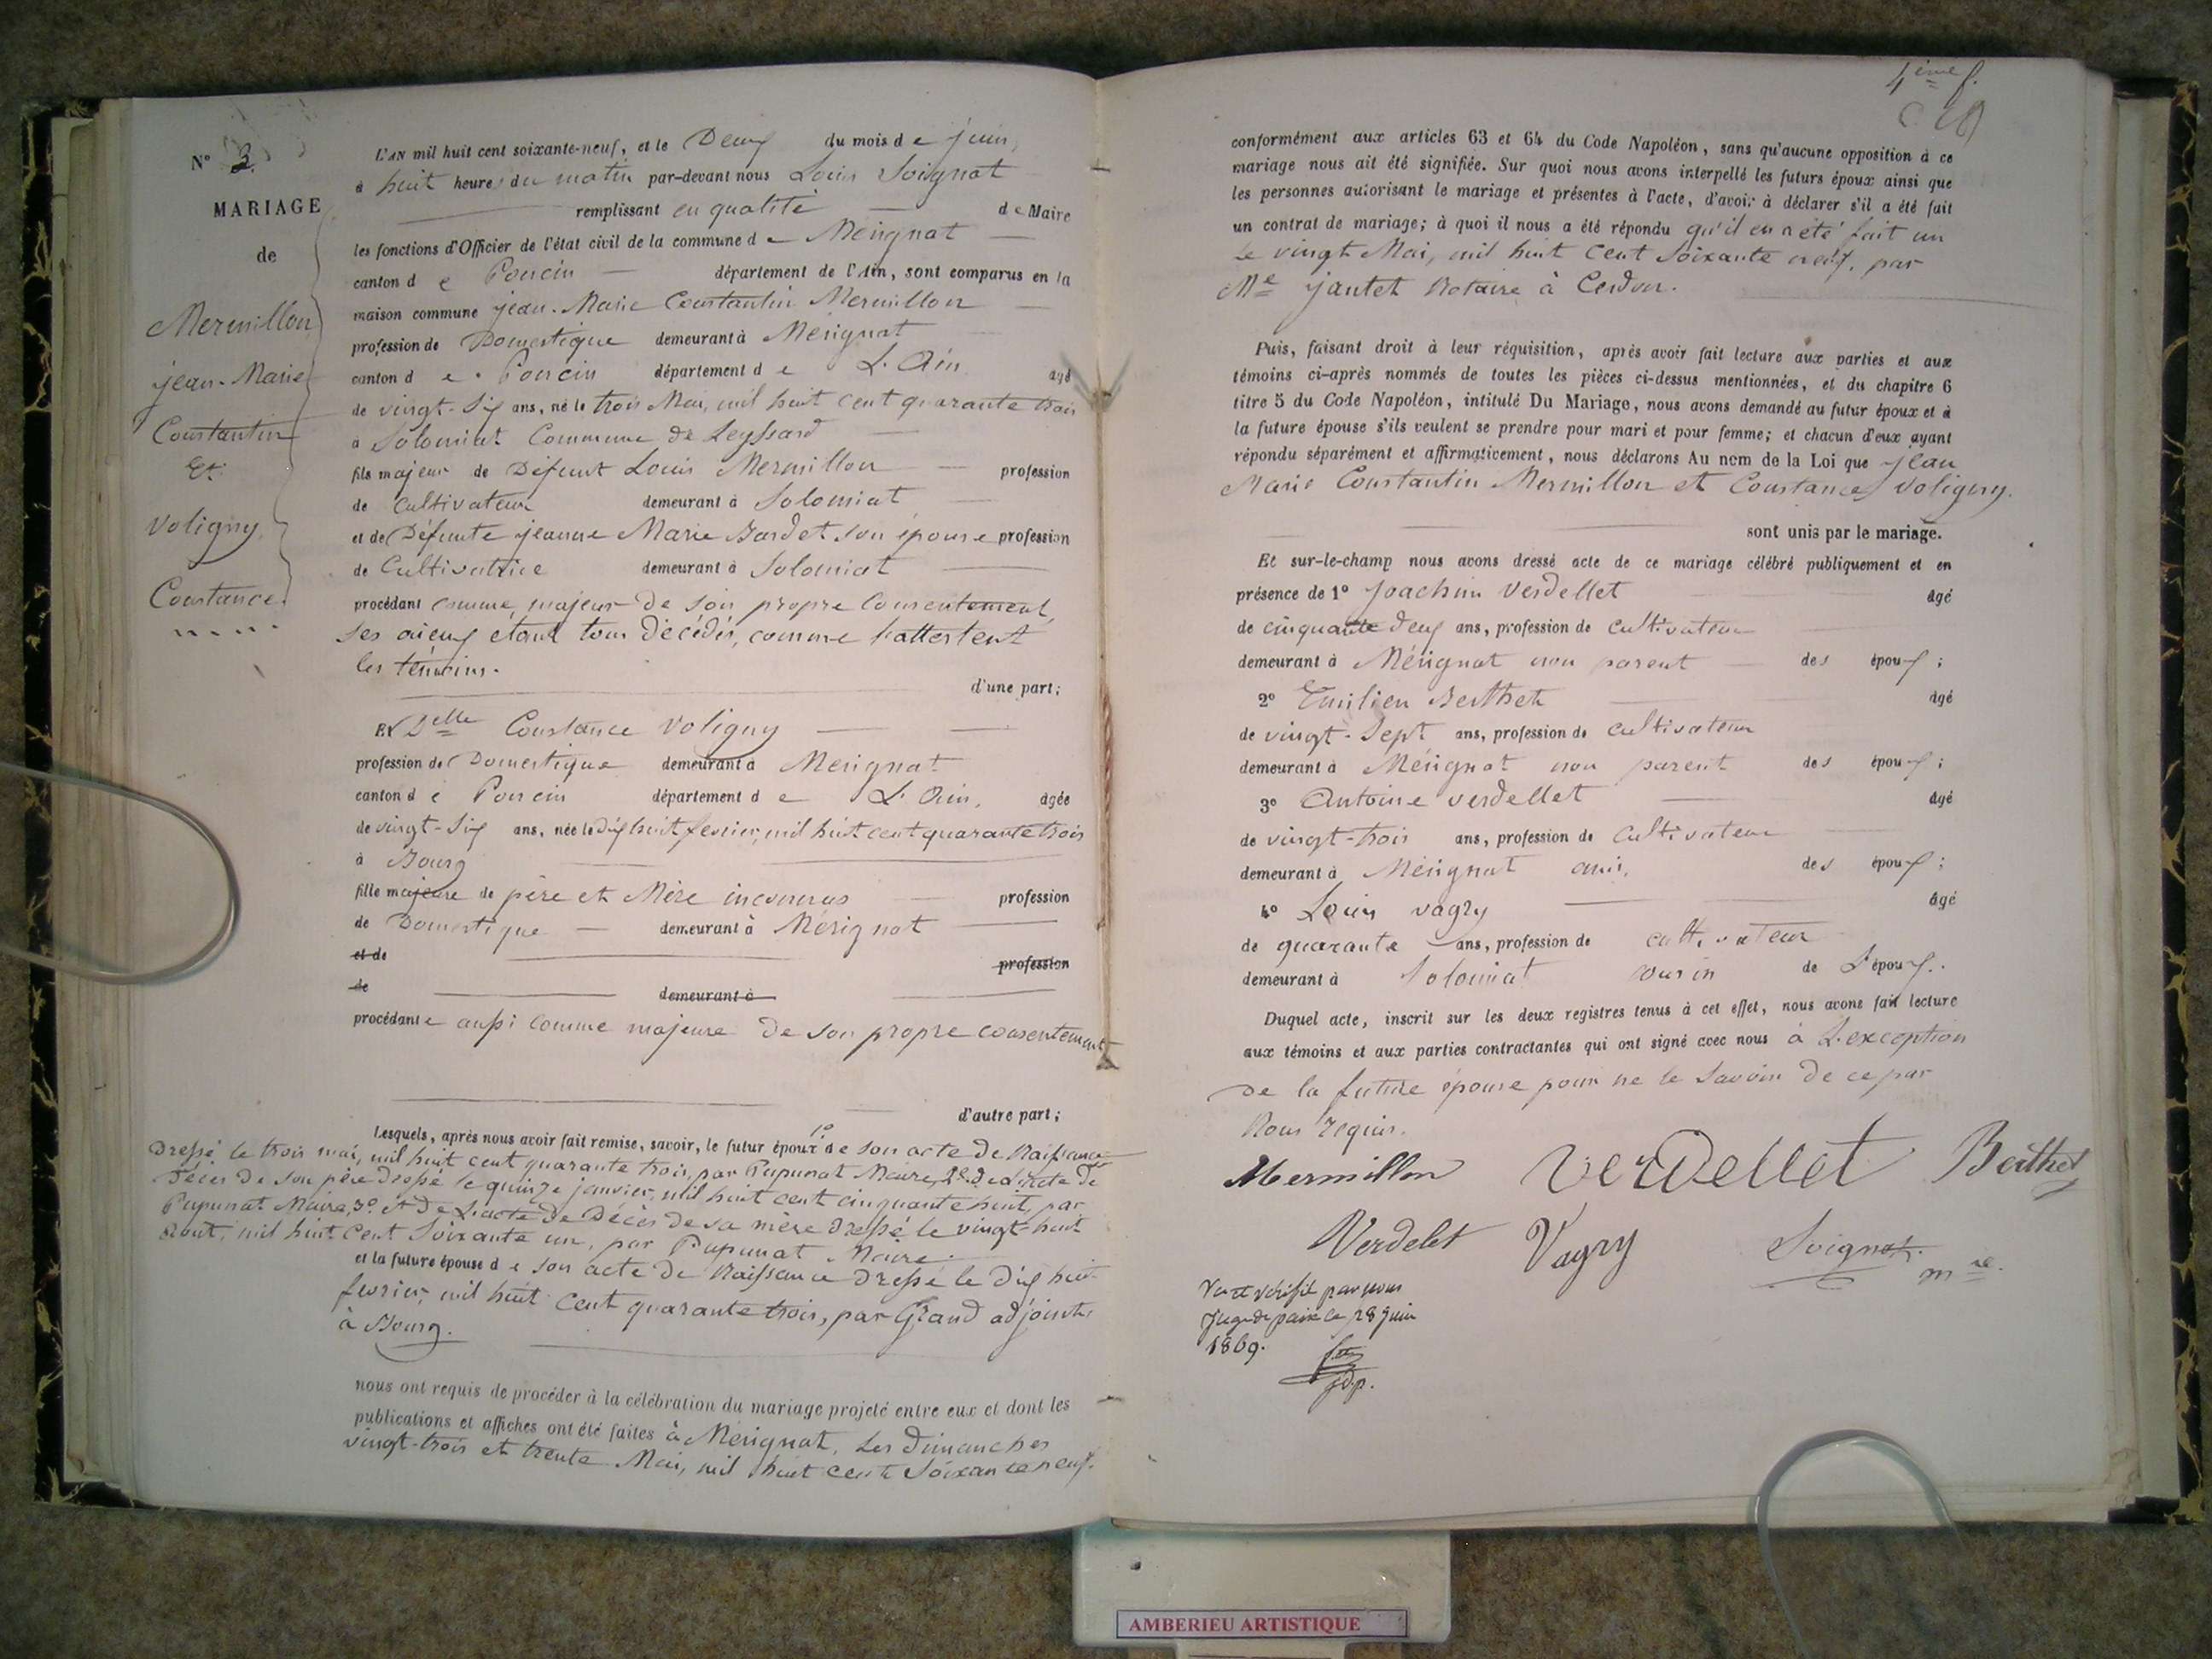 N° 3.
MARIAGE
de
Mermillon
jean-Marie
Constantin
Et
Voligny
Constance.
L'AN mil huit cent soixante-neuf, et le Deux du mois de juin,
à huit heures du matin par-devant nous Louis Soignat
remplissant en qualité de Maire
les fonctions d'Officier de l'état civil de la commune de Mérignat
canton de Poncin département de l'Ain, sont comparus en la
maison commune jean-Marie Constantin Mermillon
profession de Domestique demeurant à Mérignat
canton de Poncin département de L'Ain âgé
de vingt-six ans, né le trois Mai, mil huit cent quarante trois
à Solomiat Commune de Leyssard
fils majeur de Défunt Louis Mermillon profession
de Cultivateur demeurant à Solomiat
et de Défunte jeanne Marie Bardet son épouse profession
de Cultivatrice demeurant à Solomiat
procédant comme majeur de son propre Consentement,
ses aieux étant tous décédés, comme l'attestent
les témoins.
d'une part;
Et Delle Constance Voligny
profession de Domestique demeurant à Mérignat
canton de Poncin département de L'Ain, âgée
de vingt-six ans, née le dix huit fevrier, mil huit cent quarante trois
à Bourg
fille majeure de père et Mère inconnus profession
de Domestique demeurant à Mérignat
et de profession
de demeurant à
procédante aussi comme majeure de son propre consentement
d'autre part;
Lesquels, après nous avoir fait remise, savoir, le futur époux 1° de son acte de Naissance
Dressé le trois mai, mil huit cent quarante trois, par Pupunat Maire, 2° de l'acte de
Décès de son père dressé le quinze janvier, mil huit cent cinquante huit, par
Pupunat Maire, 3° et de L'acte de Décès de sa mère dressé le vingt-huit
Aout, mil huit Cent Soixante un, par Pupunat Maire.
et la future épouse de son acte de Naissance dressé le dix huit
fevrier, mil huit Cent quarante trois, par Grand adjoint
à Bourg.
nous ont requis de procéder à la célébration du mariage projeté entre eux et dont les
publications et affiches ont été faites à Mérignat, Les Dimanches
vingt-trois et trente Mai, mil huit cent Soixante neuf.
4ème f.
conformément aux articles 63 et 64 du Code Napoléon, sans qu'aucune opposition à ce
mariage nous ait été signifiée. Sur quoi nous avons interpellé les futurs époux ainsi que
les personnes autorisant le mariage et présentes à l'acte, d'avoir à déclarer s'il a été fait
un contrat de mariage; à quoi il nous a été répondu qu'il en a été fait un
Le vingt Mai, mil huit Cent Soixante neuf, par
Me jantet Notaire à Cerdon.
Puis, faisant droit à leur réquisition, après avoir fait lecture aux parties et aux
témoins ci-après nommés de toutes les pièces ci-dessus mentionnées, et du chapitre 6
titre 5 du Code Napoléon, intitulé Du Mariage, nous avons demandé au futur époux et à
la future épouse s'ils veulent se prendre pour mari et pour femme; et chacun d'eux ayant
répondu séparément et affirmativement, nous déclarons Au nom de la Loi que jean
Marie Constantin Mermillon et Constance Voligny.
sont unis par le mariage.
Et sur-le-champ nous avons dressé acte de ce mariage célébré publiquement et en
présence de 1° Joachim Verdellet âgé
de cinquante deux ans, profession de Cultivateur
demeurant à Mérignat non parent des époux;
2° Emilien Berthet âgé
de vingt-Sept ans, profession de Cultivateur
demeurant à Mérignat non parent des époux;
3° Antoine Verdellet âgé
de vingt-trois ans, profession de Cultivateur
demeurant à Mérignat ami, des époux;
4° Louis Vagry âgé
de quarante ans, profession de cultivateur
demeurant à Solomiat cousin de L'époux.
Duquel acte, inscrit sur les deux registres tenus à cet effet, nous avons fait lecture
aux témoins et aux parties contractantes qui ont signé avec nous à L'exception
de la future épouse pour ne le Savoir de ce par
Nous requis.
Mermillon Verdellet Berthet
Verdelet Vagry Soignat mre.
Vu et vérifié par nous
Juge de paix le 28 Juin
1869.
jdp.
AMBERIEU ARTISTIQUE